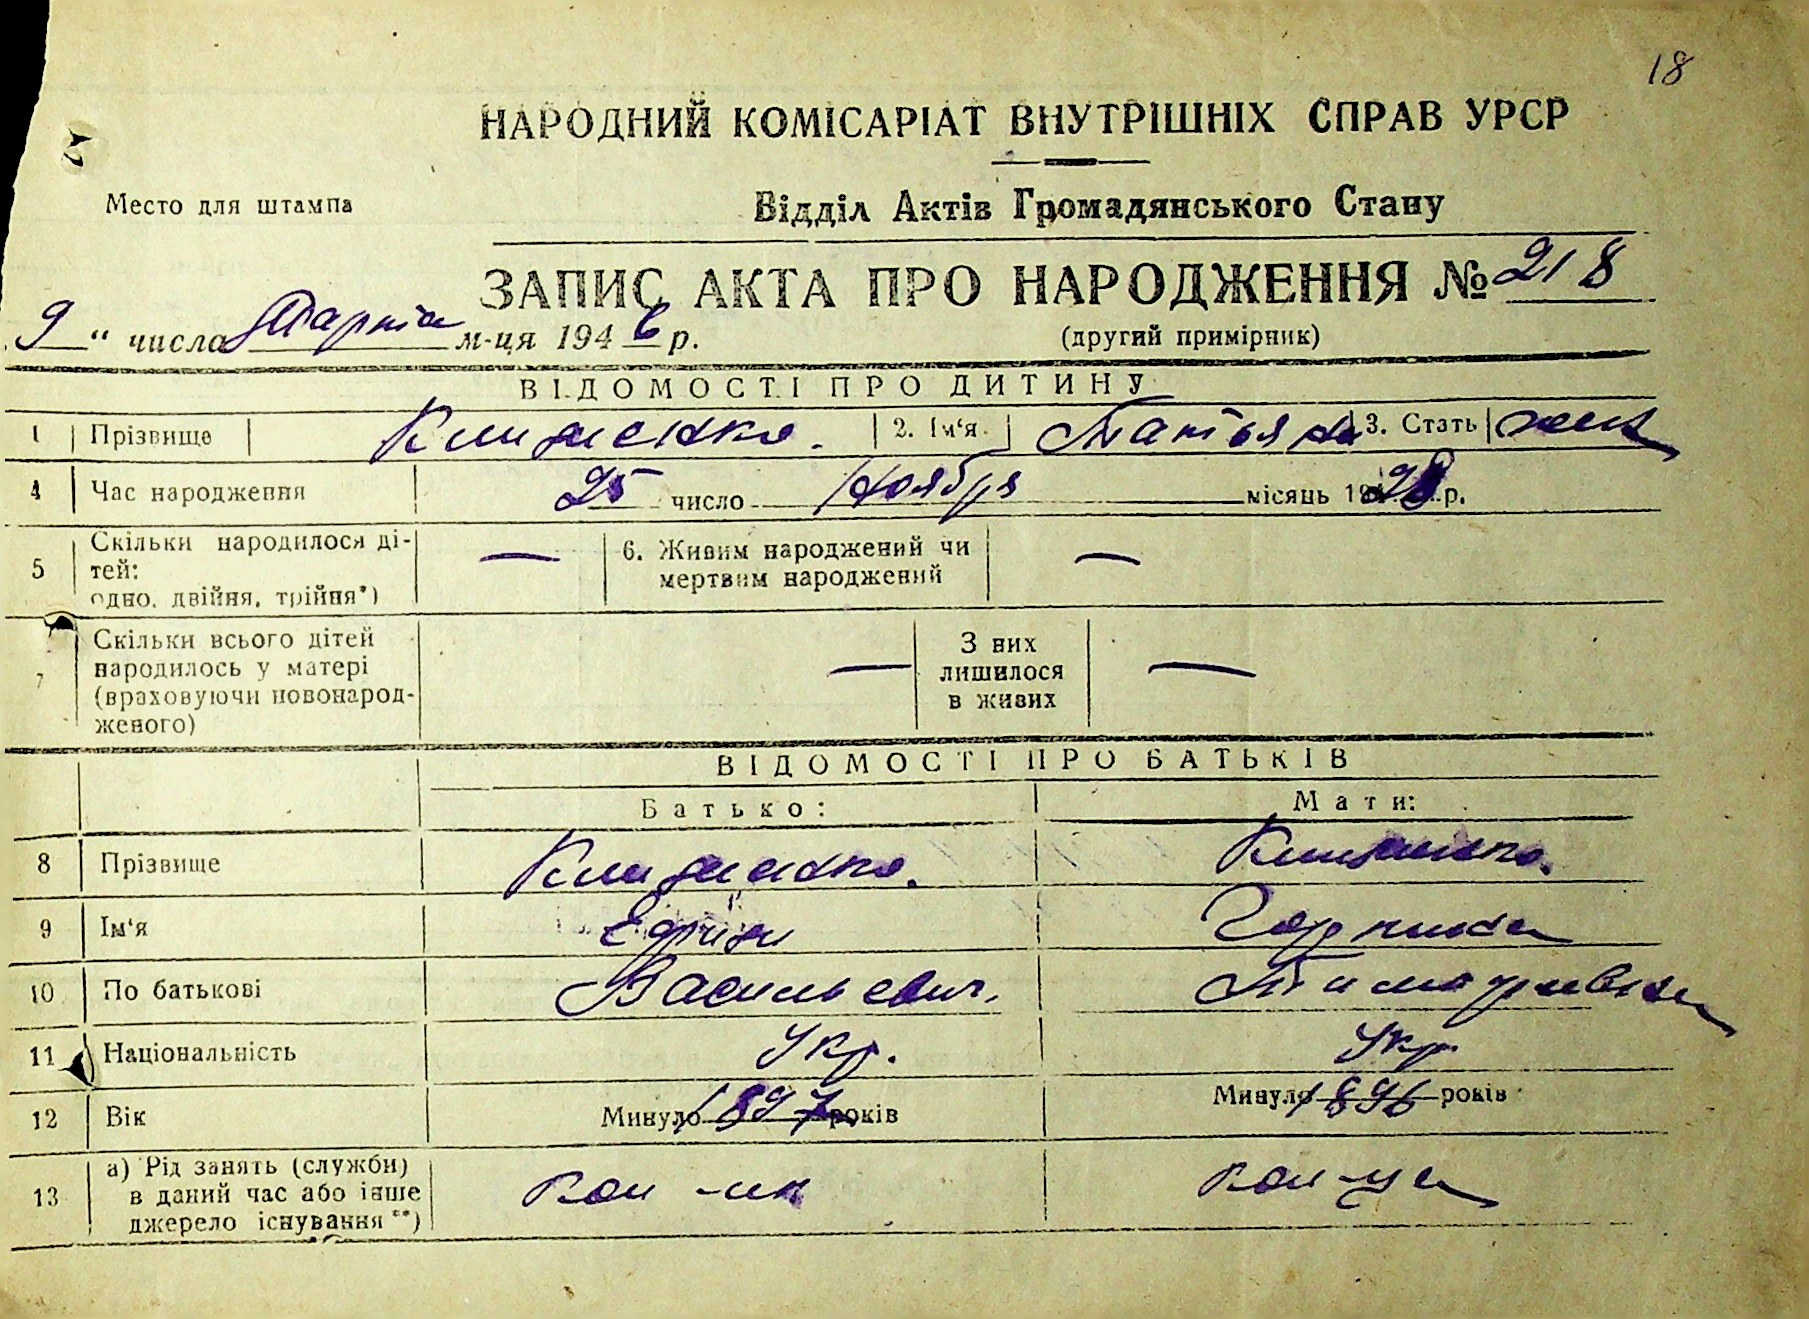 18
НАРОДНИЙ КОМІСАРІАТ ВНУТРІШНІХ СПРАВ УРСР
Место для штампа
Відділ Актів Громадянського Стану
ЗАПИС АКТА ПРО НАРОДЖЕННЯ № 218
9 " числа Марта м-ця 1946 р.
(другий примірник)
ВІДОМОСТІ ПРО ДИТИНУ
1 Прізвище Клименко. 2. Ім'я Татьяна 3. Стать жен
4 Час народження 25 число Ноября місяць 1928 р.
5 Скільки народилося ді-
тей:
одно, двійня, трійня*) — 6. Живим народжений чи
мертвим народжений —
7 Скільки всього дітей
народилось у матері
(враховуючи новонарод-
женого) — З них
лишилося
в живих —
ВІДОМОСТІ ПРО БАТЬКІВ
Батько: Мати:
8 Прізвище Клименко. Клименко.
9 Ім'я Горпина
10 По батькові Васильевич.
11 Національність Укр. Укр.
12 Вік Минуло 1897 років Минуло 1896 років
13 а) Рід занять (служби)
в даний час або інше
джерело існування **) кол-ик кол-ца